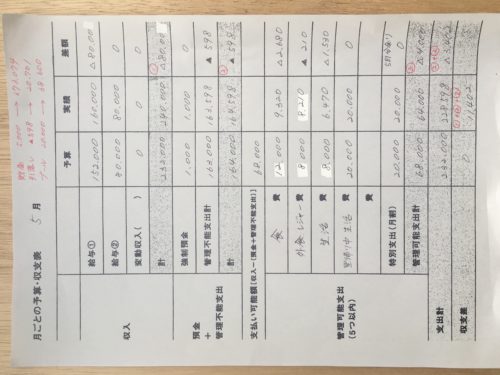 月ごとの予算・収支表 5月
貯金 2,000 →
引落し ▲598 →
プール 20,000 →
予算 実績 差額
収入
給与① 152,000 160,000 △80.00
給与② 80,000 80,000 0
変動収入( ) 0 0 0
計 232,000 240,000 ① △80.00
預金
+
管理不能支出
強制預金 1,000 1,000 0
管理不能支出計 163,000 163,598 ▲598
計 164,000 164,598 ② ▲598
支払い可能額[収入−(預金+管理不能支出)] 68,000
管理可能支出
(5つ以内)
食 費 12,000 9,320 △2,680
外食レジャー 費 8,000 8,210 ▲210
生活 費 8,000 6,470 △1,530
里帰り中生活 費 20,000 20,000 0
特別支出(月割) 20,000 20,000
管理可能支出計 68,000 64,000 ③ △4,000
支出計 232,000 228,598 ②+③ △3,402
収支差 0 11,402 ①+②+③